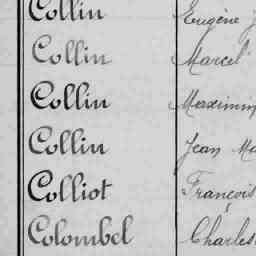 Collin Eugène
Collin Marcel
Collin Maximin
Collin Jean
Colliot François
Colombel Charles